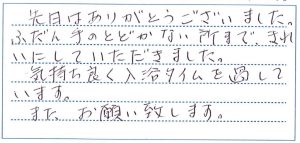 先日はありがとうございました。
ふだん手のとどかない所まで、きれ
いにしていただきました。
気持ち良く入浴タイムを過して
います。
また お願い致します。